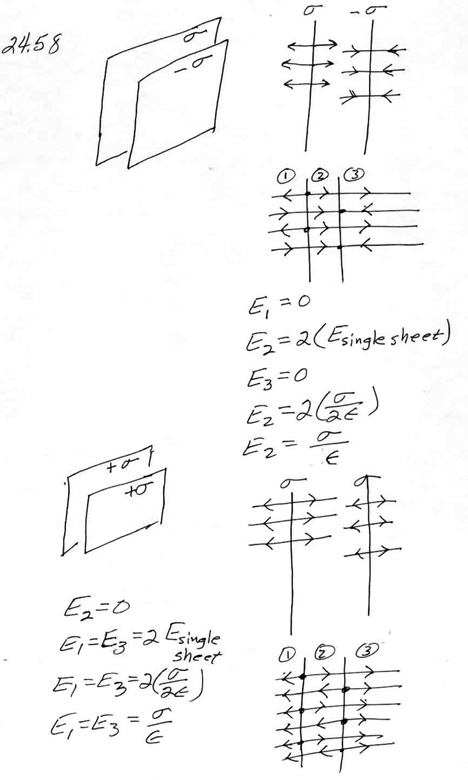 24.58
σ
-σ
σ -σ
① ② ③
E₁ = 0
E₂ = 2(E single sheet)
E₃ = 0
E₂ = 2(σ/2ϵ)
E₂ = σ/ϵ
+σ
+σ
σ σ
E₂ = 0
E₁ = E₃ = 2 E single sheet
E₁ = E₃ = 2(σ/2ϵ)
E₁ = E₃ = σ/ϵ
① ② ③